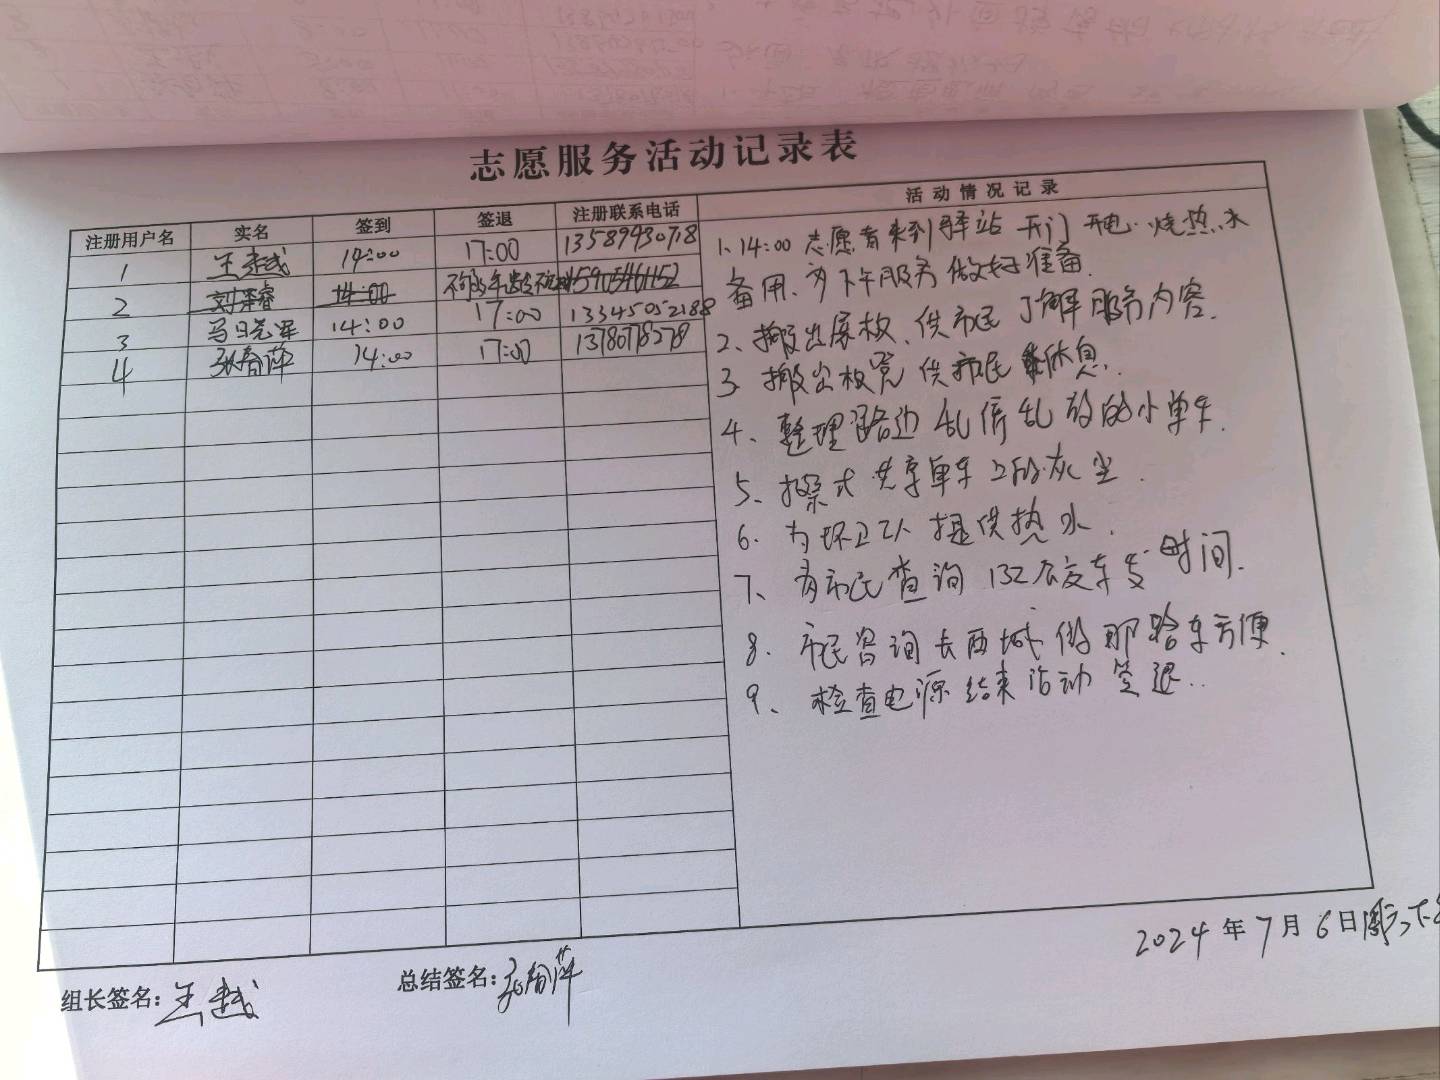 志愿服务活动记录表
注册用户名 实名 签到 签退 注册联系电话 活动情况记录
1 王 14:00 17:00 13589930718
2 刘泽睿 14:00 不够年龄 15905461152
3 马日芫军 14:00 17:00 13345052188
4 张春萍 14:00 17:00 13780778278
1、14:00 志愿者来到驿站 开门 开电 烧热水
备用、为下午服务做好准备.
2、搬出展板、供市民了解服务内容.
3 搬出板凳 供市民 休息.
4、整理路边乱停乱放的小单车.
5、擦式共享单车上的灰尘.
6. 为环卫工人提供热水.
7、有市民查询132公交车发时间.
8. 市民咨询去西城做那路车方便.
9、检查电源结束活动签退..
2024年7月6日周六下
组长签名:王 总结签名:张春萍